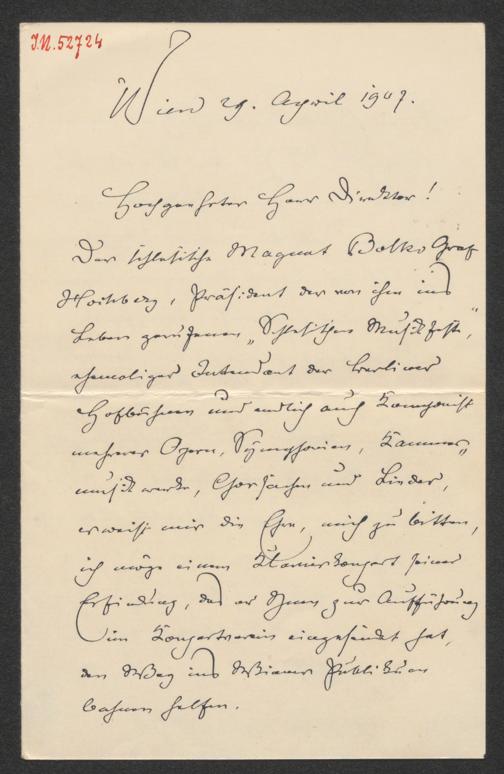 J.N. 52724
Wien 29. April 1907.
Hochgeehrter Herr Direktor!
Der schlesische Magnat Bolko Graf
Hochberg, Präsident der von ihm ins
Leben gerufenen „Schlesischen Musikfeste“,
ehemaliger Intendant der Berliner
Hofbühnen und endlich auch Komponist
mehrerer Opern, Symphonien, Kammer„
musikwerke, Chorsachen und Lieder,
erweist mir die Ehre, mich zu bitten,
ich möge einem Klavierkonzert seiner
Erfindung, das er Ihnen zur Aufführung
im Konzertverein eingesendet hat,
den Weg ins Wiener Publikum
bahnen helfen.